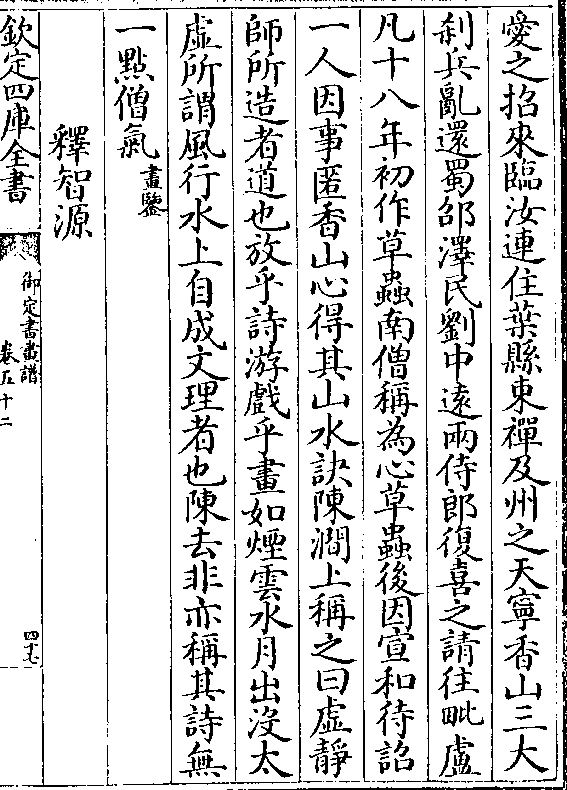 愛之招來臨汝連住葉縣東禪及州之天寧香山三大
刹兵亂還蜀邵澤民劉中遠兩侍郎復喜之請住毗盧
凡十八年初作草蟲南僧稱為心草蟲後因宣和待詔
一人因事匿香山心得其山水訣陳澗上稱之曰虛靜
師所造者道也放乎詩游戲乎畫如煙雲水月出沒太
虛所謂風行水上自成文理者也陳去非亦稱其詩無
一點僧氣畫鑒
釋智源
欽定四庫全書
御定書畫譜
卷五十二